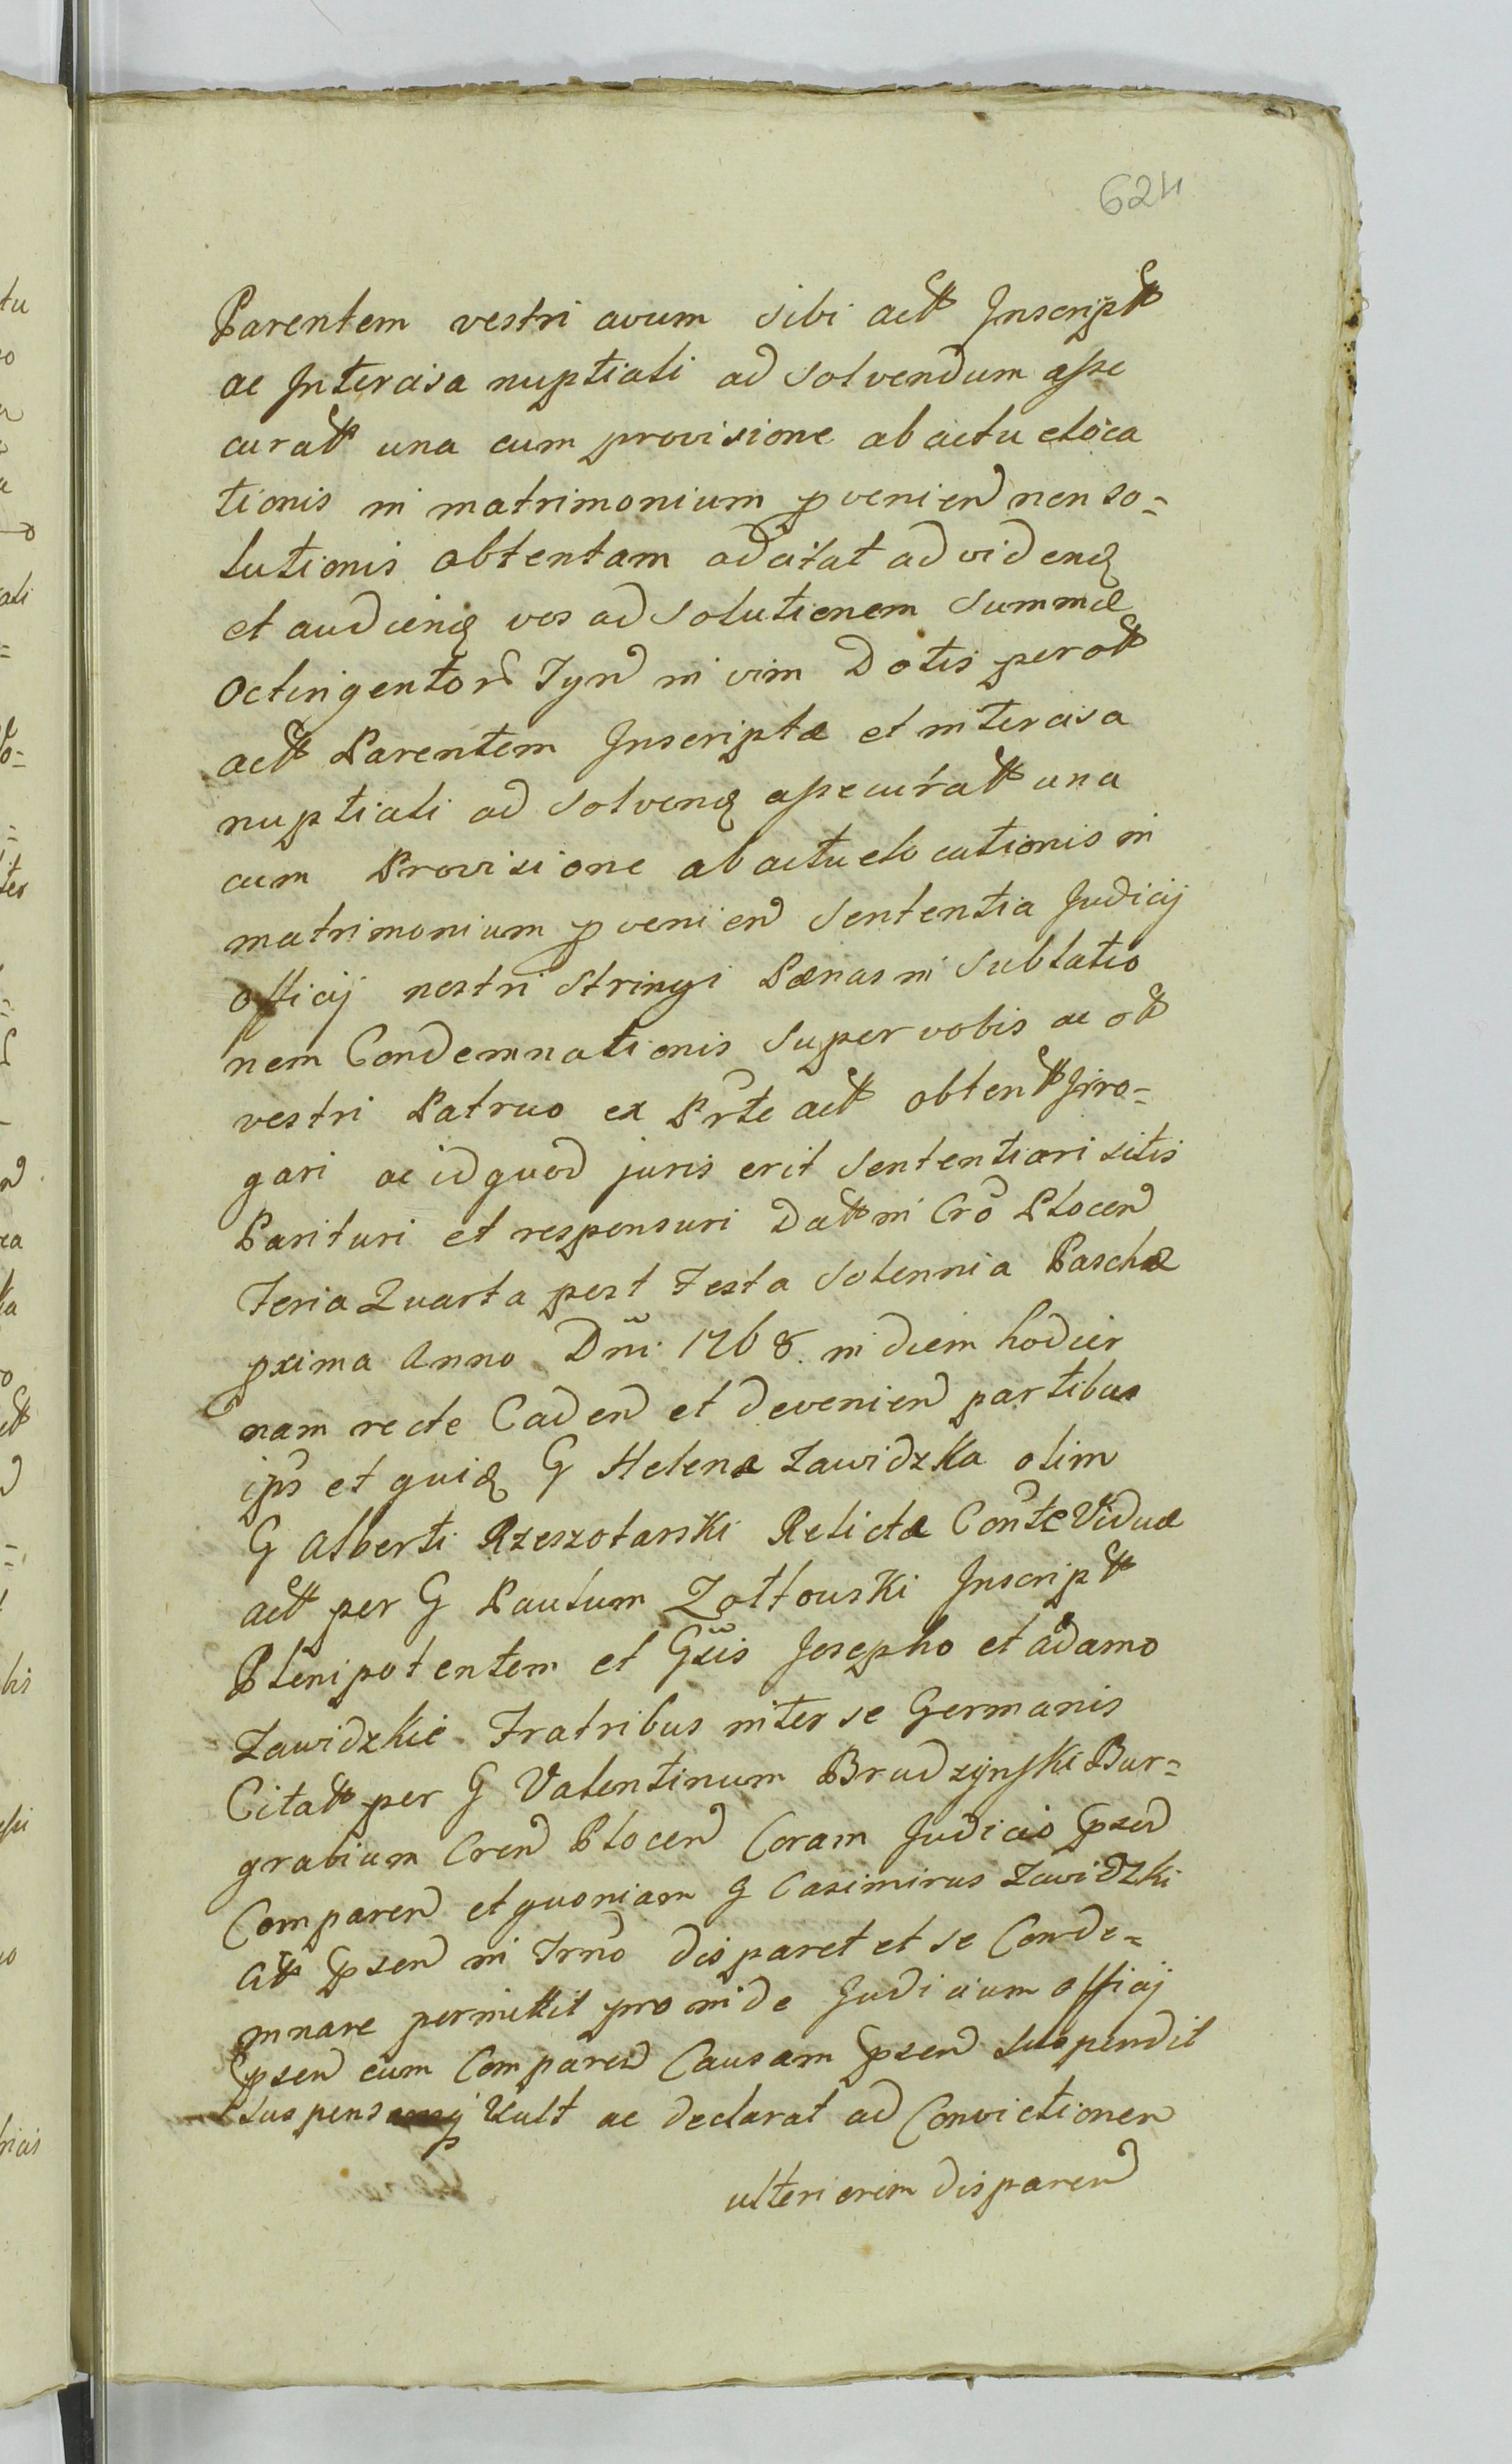 624
Parentem vestri avum sibi actt Inscriptt
ac Intercisa nuptiali ad solvendum asse
curatt una cum provisione ab actu eloca
tionis in matrimonium pvenien non so=
lutionis obtentam adcitat ad videnq
et audienq vos ad solutionem summæ
Octingentor Tyn in vim Dotis per ott
actt Parentem Inscriptæ et intercisa
nuptiali ad solvenq assecuratt una
cum Provisione ab actu elocationis in
matrimonium pvenien Sententia Judicij
officij nostri stringi Pænas in sublatio
nem Condemnationis super vobis ac ott
vestri Patruo ex Prte actt obtentt irro=
gari ac id quod juris erit sententiari sitis
Parituri et responsuri Datt in Cro Plocen
Feria Quarta post Festa Solennia Paschæ
pxima Anno Dni 1768. in diem hodier
nam recte Caden et devenien partibus
ips et quiq G Helenæ Zawidzka olim
G Alberti Rzeszotarski Relictæ Conte Viduæ
actt per G Paulum Zołtouski Inscriptt
Plenipotentem et Gsis Josepho et Adamo
Zawidzkie Fratribus inter se Germanis
Citatt per G Valentinum Brudzynski Bur=
grabium Cren Plocen Coram Judicio psen
Comparen et quoniam G Casimirus Zawidzki
Citt psen in Trno disparet et se Conde=
mnare permittit pro inde Judicium officij
psen cum Comparen Causam psen suspendit
suspensamq vult ac declarat ad Convictionem
ulteriorem disparen